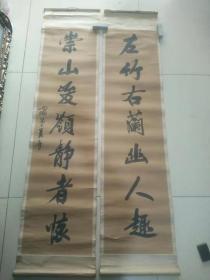 左竹右蘭幽人趣
崇山峻嶺静者懷